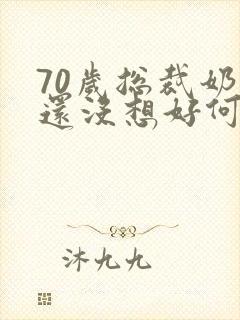 70歲總裁奶
還沒想好何
沐九九